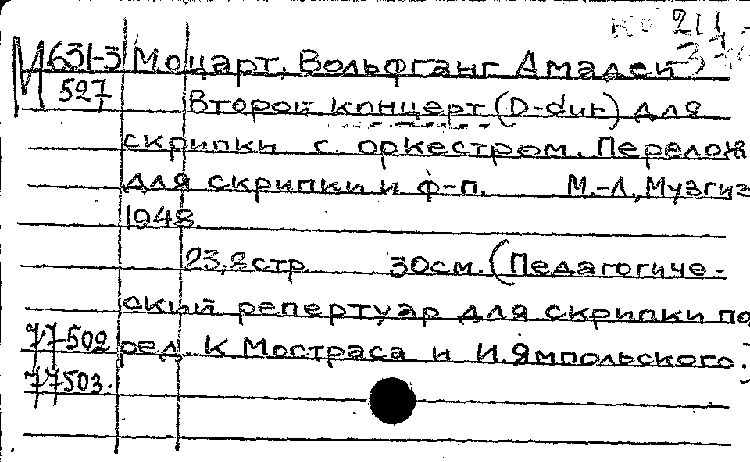 М 631-3 Моцарт, Вольфганг Амадей
527 Второй кпнцерт (D-dur) для
скрипки с оркестром. Перелож
для скрипки и ф-п. М.-Л, Музгиз
1948
23,2стр 30см. (Педагогиче-
ский репертуар для скрипки по
77502 ред. К Мостраса и И. Ямпольского.)
77503.